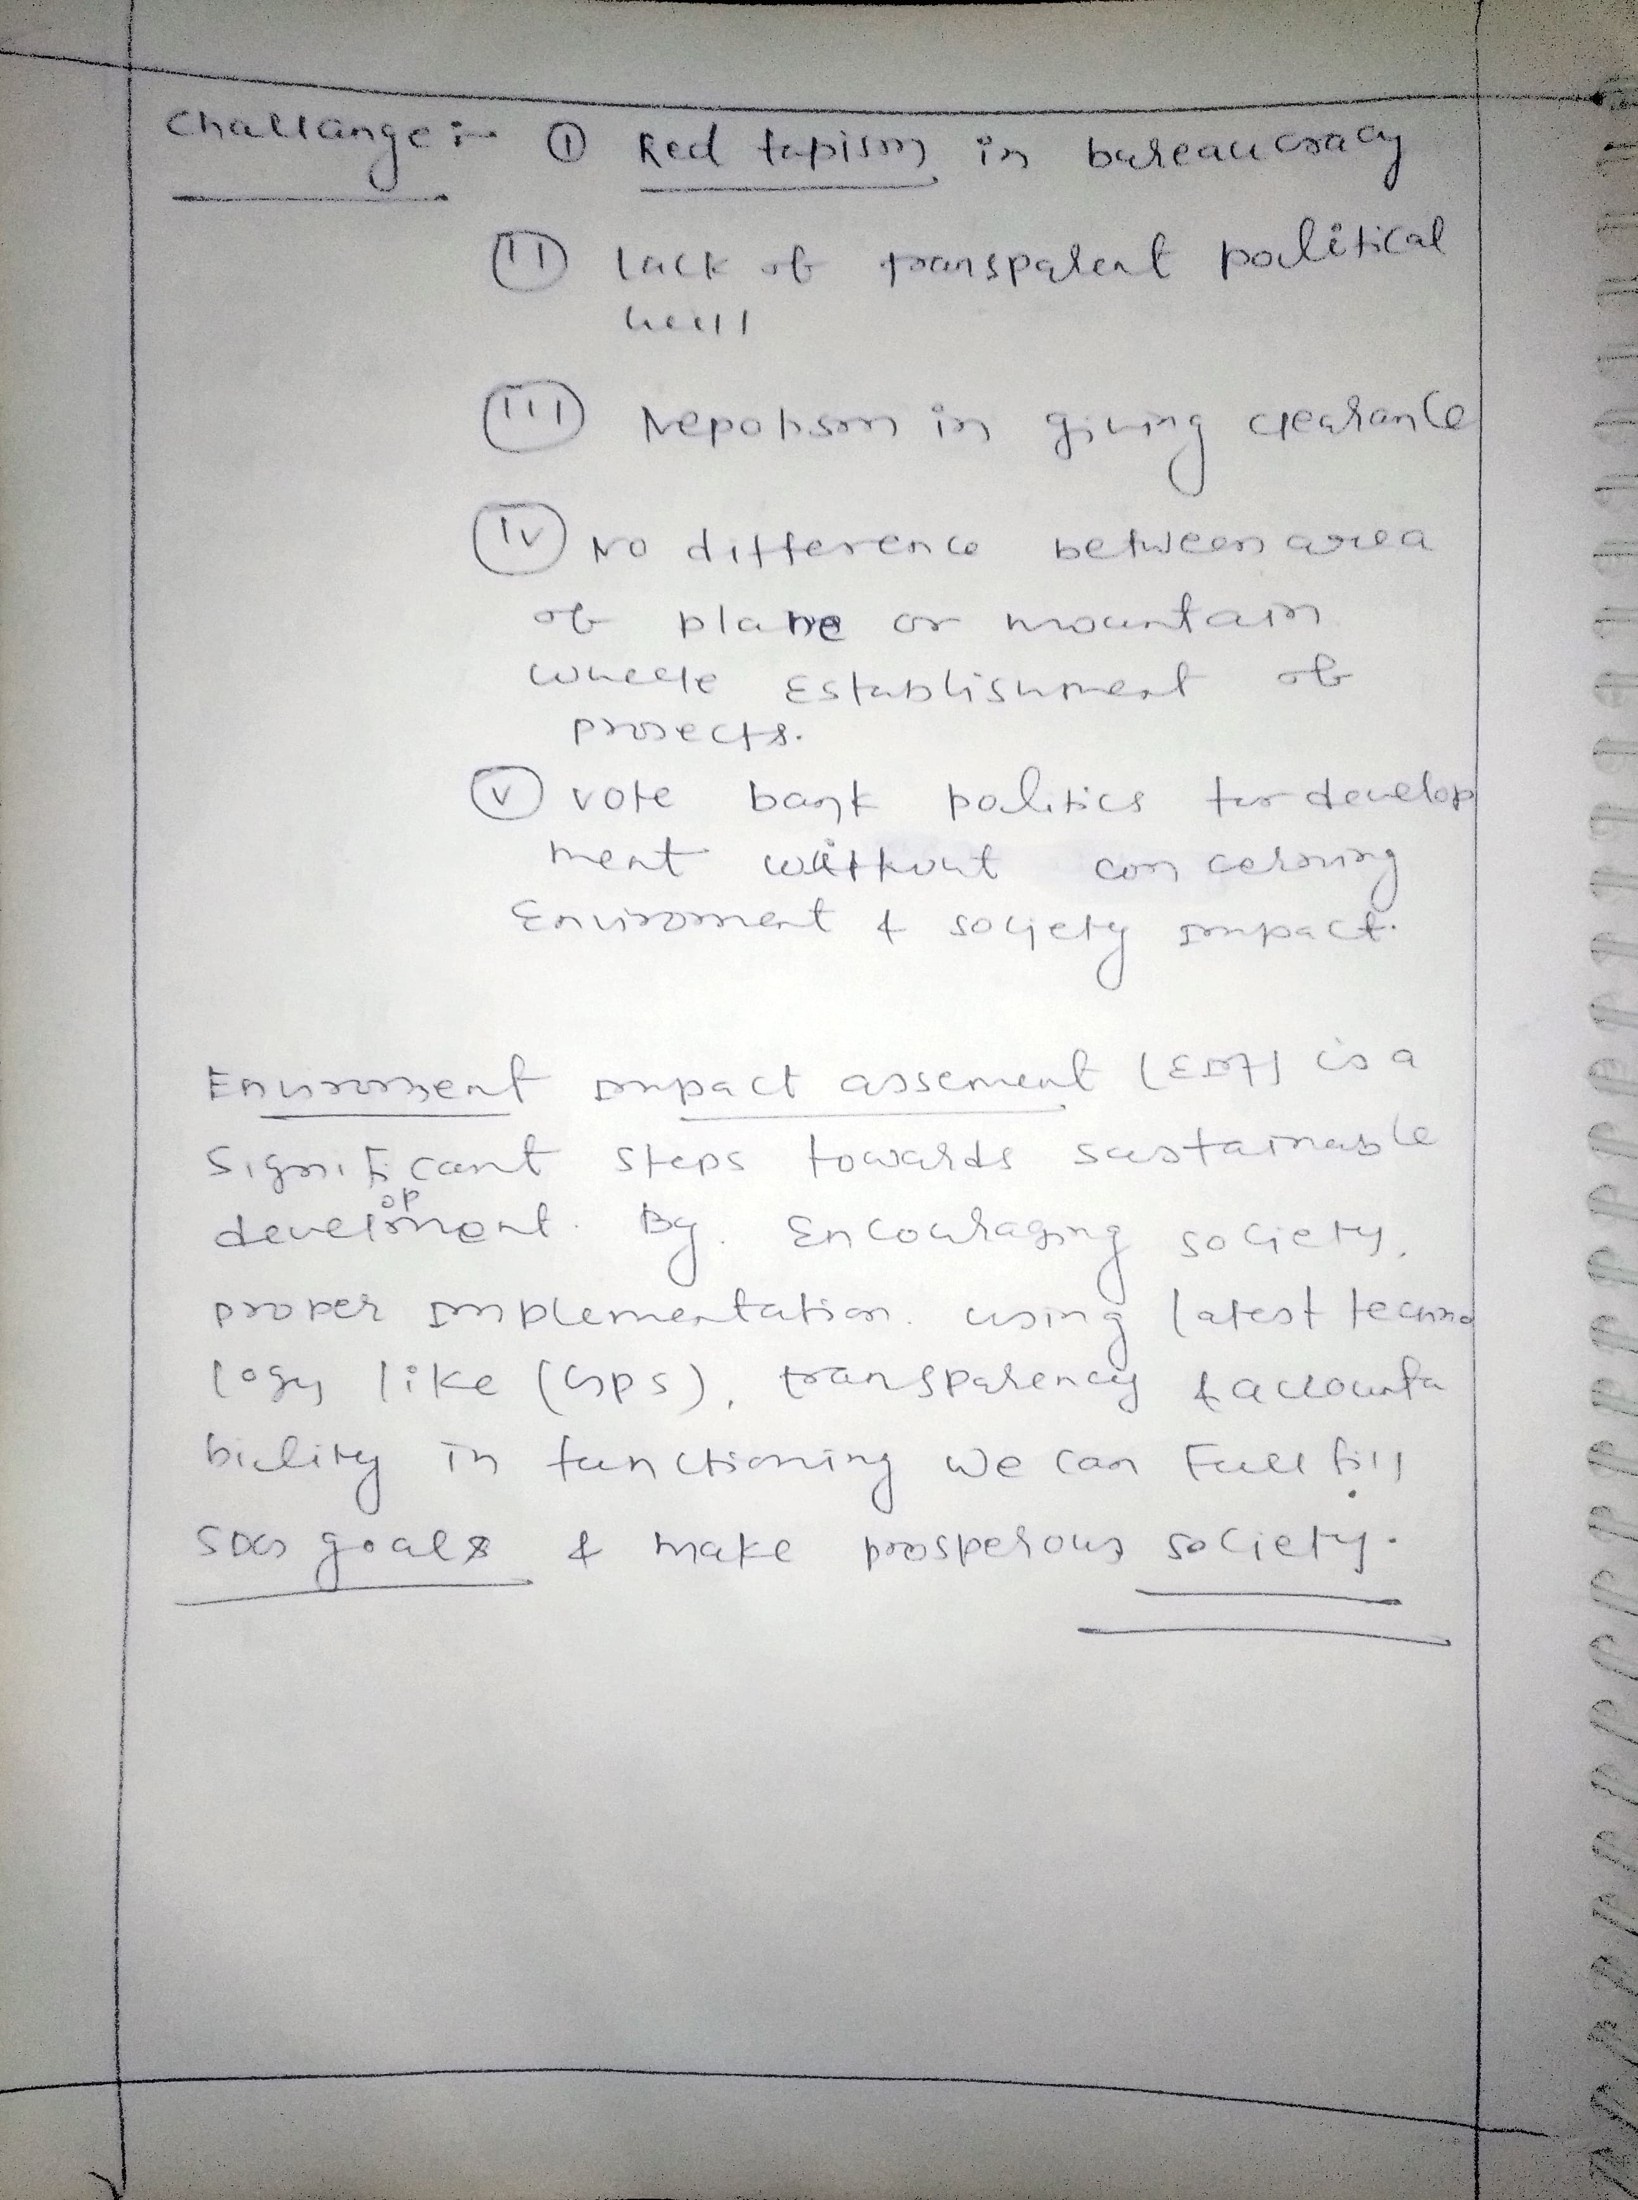 Challange :- (i) Red tapism in bureaucracy
(ii) Lack of transparent political
will
(iii) Nepotism in giving clearance
(iv) No difference between area
of plane or mountain
where Establishment of
projects.
(v) vote bank politics for develop
ment without concerning
Enviroment & society impact.
Enviroment impact assement (EIA) is a
significant steps towards sustainable
development. By. Encouraging society,
proper implementation. using latest techno
logy like (GPS), transparency & accounta
bility in functioning we can Fullfill
SDG goals & make prosperous society.